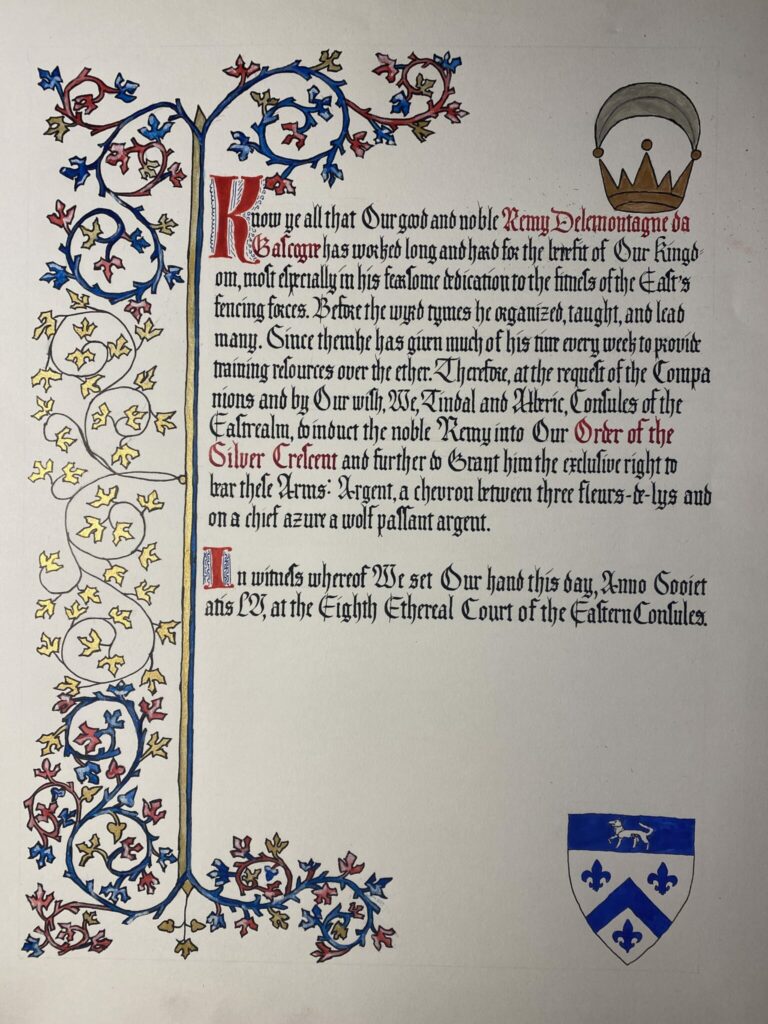 Know ye all that Our good and noble Remy Delemontagne da
Gascogne has worked long and hard for the benefit of Our Kingd-
om, most eſpecially in his fearsome dedication to the fitneſs of the Eaſt's
fencing forces. Before the wyrd tymes he organized, taught, and lead
many. Since them he has given much of his time every week to provide
training reſources over the ether. Therefore, at the requeſt of the Compa
nions and by Our wiſh, We, Tindal and Alberic, Conſules of the
Eaſtrealm, do induct the noble Remy into Our Order of the
Silver Creſcent and further do Grant him the excluſive right to
bear theſe Arms: Argent, a chevron between three fleurs-de-lys and
on a chief azure a wolf paſſant argent.
In witneſs whereof We set Our hand this day, Anno Societ
atis LV, at the Eighth Ethereal Court of the Eaſtern Conſules.